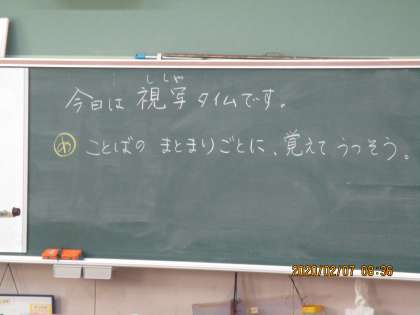 ししゃ
今日は 視写 タイムです。
め ことばの まとまりごとに、覚えて うつそう。
2020/02/07 08:38